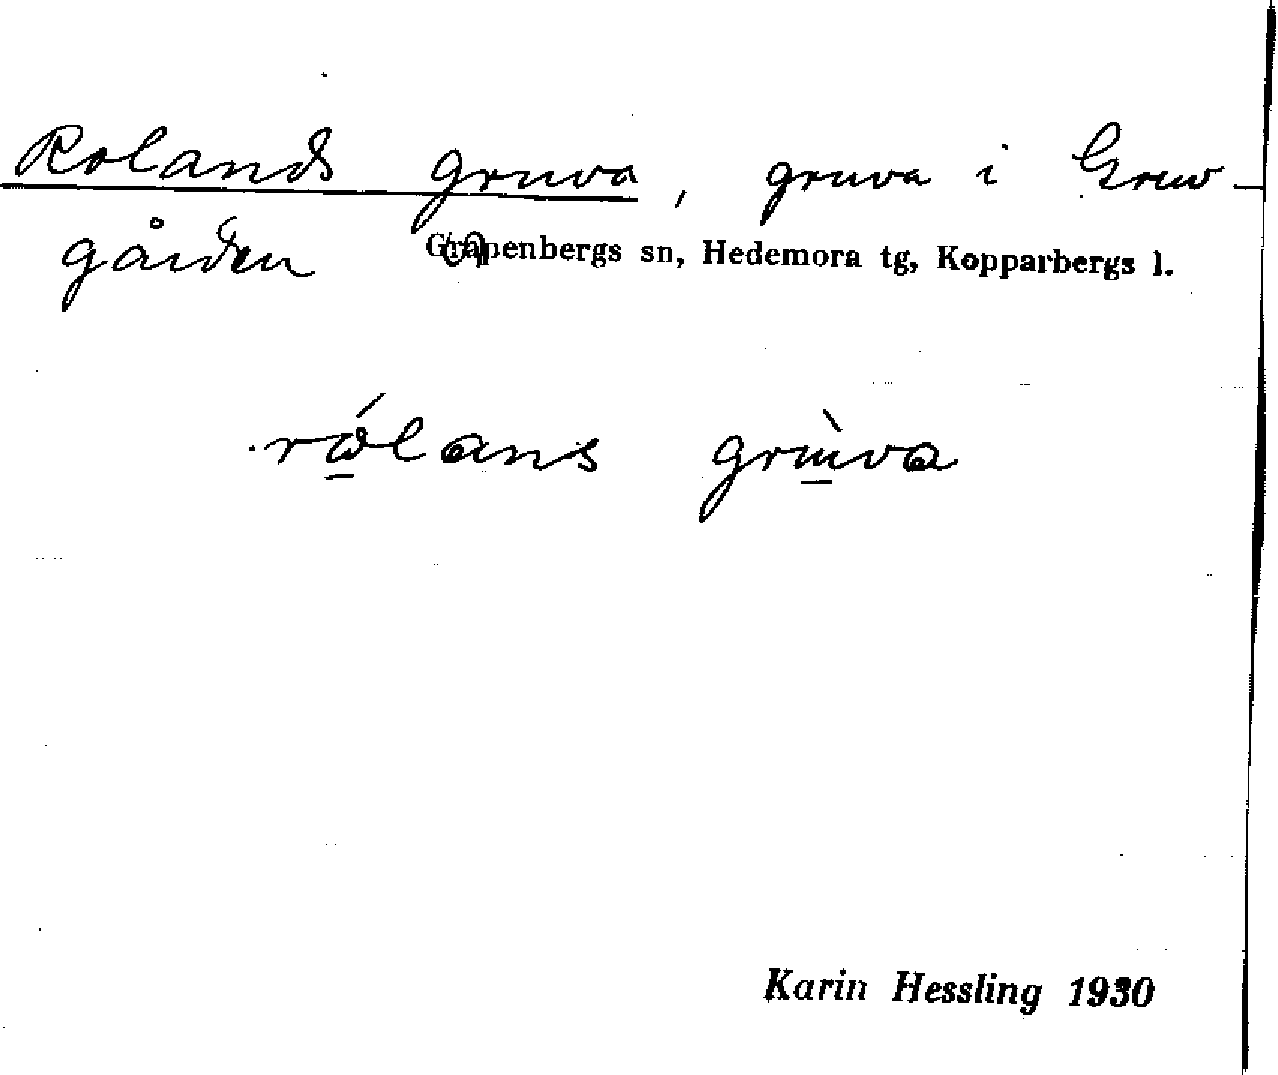 Rolands gruva, gruva i Gruv-
gården Grapenbergs sn, Hedemora tg, Kopparbergs l.
rώlans grùva
Karin Hessling 1930